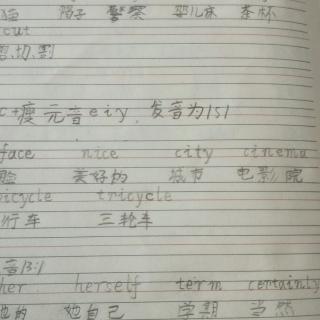 猫 陷子 警察 婴儿床 茶杯
cut
剪、切、割
c+瘦元音 e i y , 发音为/s/
face nice city cinema
脸 美好的 城市 电影院
bicycle tricycle
行车 三轮车
音/3:/
her herself term certainly
她的 她自己 学期 当然